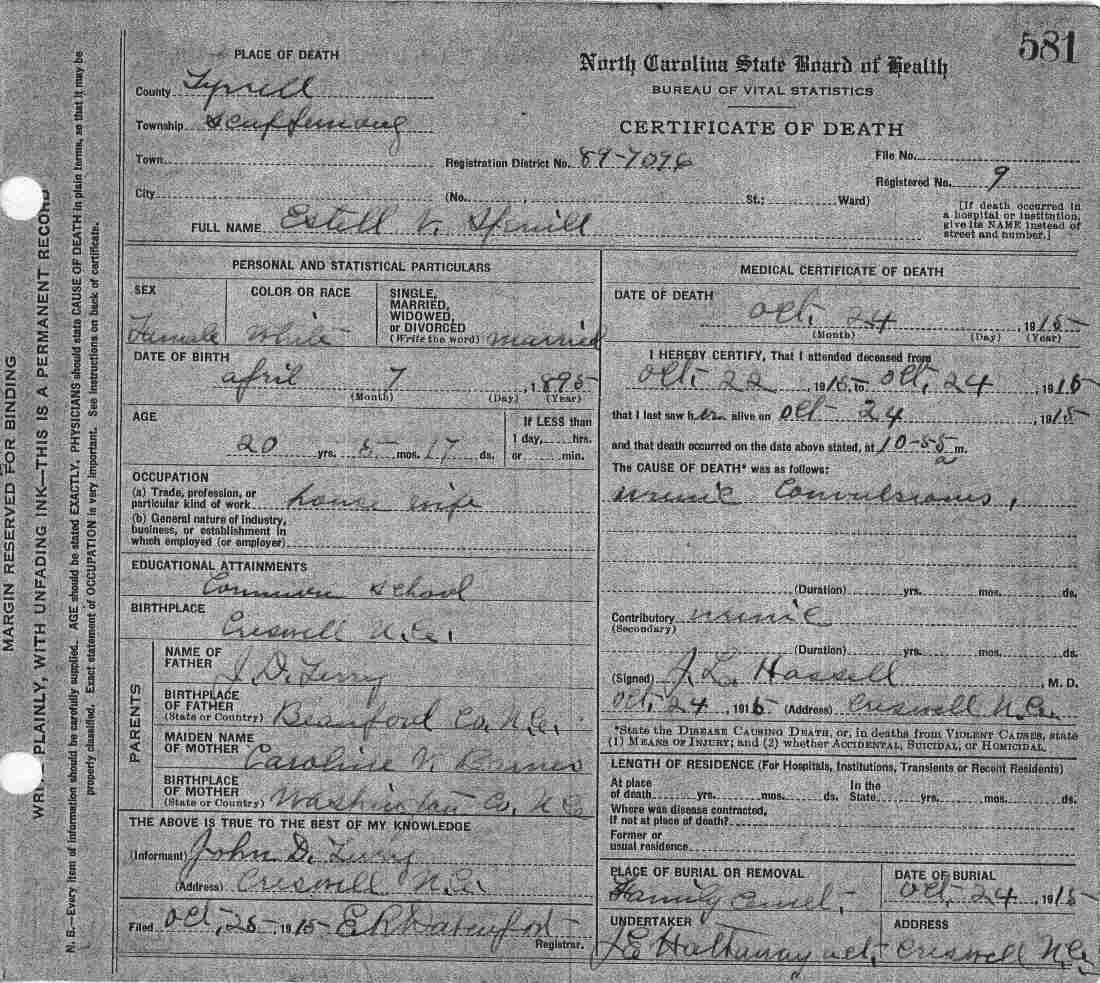 581
PLACE OF DEATH
County Tyrrell
Township Scuppernong
Town
City
North Carolina State Board of Health
BUREAU OF VITAL STATISTICS
CERTIFICATE OF DEATH
Registration District No. 89-7096
File No.
Registered No. 9
(No. , St.; Ward)
[If death occurred in
a hospital or institution,
give its NAME instead of
street and number.]
FULL NAME Estell V. Spruill
MARGIN RESERVED FOR BINDING
PLAINLY, WITH UNFADING INK—THIS IS A PERMANENT RECORD
N. B.—Every item of information should be carefully supplied. AGE should be stated EXACTLY. PHYSICIANS should state CAUSE OF DEATH in plain terms, so that it may be
properly classified. Exact statement of OCCUPATION is very important. See instructions on back of certificate.
PERSONAL AND STATISTICAL PARTICULARS
SEX
Female
COLOR OR RACE
White
SINGLE,
MARRIED,
WIDOWED,
or DIVORCED
(Write the word) married
DATE OF BIRTH
april 7 , 1895
(Month) (Day) (Year)
AGE
20 yrs. 5 mos. 17 ds.
If LESS than
1 day, hrs.
or min.
OCCUPATION
(a) Trade, profession, or
particular kind of work house wife
(b) General nature of industry,
business, or establishment in
which employed (or employer)
EDUCATIONAL ATTAINMENTS
Common School
BIRTHPLACE
Creswell N.C.
PARENTS
NAME OF
FATHER J. D.
BIRTHPLACE
OF FATHER
(State or Country) Beauford Co. N.C.
MAIDEN NAME
OF MOTHER Caroline
BIRTHPLACE
OF MOTHER
(State or Country) Washington Co. N C
THE ABOVE IS TRUE TO THE BEST OF MY KNOWLEDGE
(Informant) John D.
(Address) Creswell N.C.
Filed Oct, 25, 1915 E R Davenport
Registrar.
MEDICAL CERTIFICATE OF DEATH
DATE OF DEATH
Oct, 24 , 1915
(Month) (Day) (Year)
I HEREBY CERTIFY, That I attended deceased from
Oct. 22 , 1915, to Oct. 24 , 1915
that I last saw her alive on Oct 24 , 1915
and that death occurred on the date above stated, at 10-55 a m.
The CAUSE OF DEATH* was as follows:
uremic Convulsions,
(Duration) yrs. mos. ds.
Contributory uremic
(Secondary)
(Duration) yrs. mos. ds.
(Signed) J. L. Hassell , M. D.
Oct, 24 , 1915 (Address) Creswell N.C.
*State the DISEASE CAUSING DEATH, or, in deaths from VIOLENT CAUSES, state
(1) MEANS OF INJURY; and (2) whether ACCIDENTAL, SUICIDAL, or HOMICIDAL.
LENGTH OF RESIDENCE (For Hospitals, Institutions, Transients or Recent Residents)
At place
of death yrs. mos. ds.
In the
State yrs. mos. ds.
Where was disease contracted,
if not at place of death?
Former or
usual residence
PLACE OF BURIAL OR REMOVAL
Family
DATE OF BURIAL
Oct, 24 , 1915
UNDERTAKER
J E Hathaway
ADDRESS
Creswell N.C.